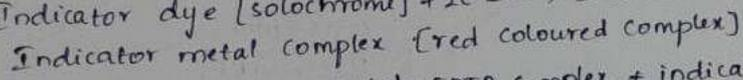 Indicator dye [solochrome] +
Indicator metal complex [red coloured complex]
+ indica